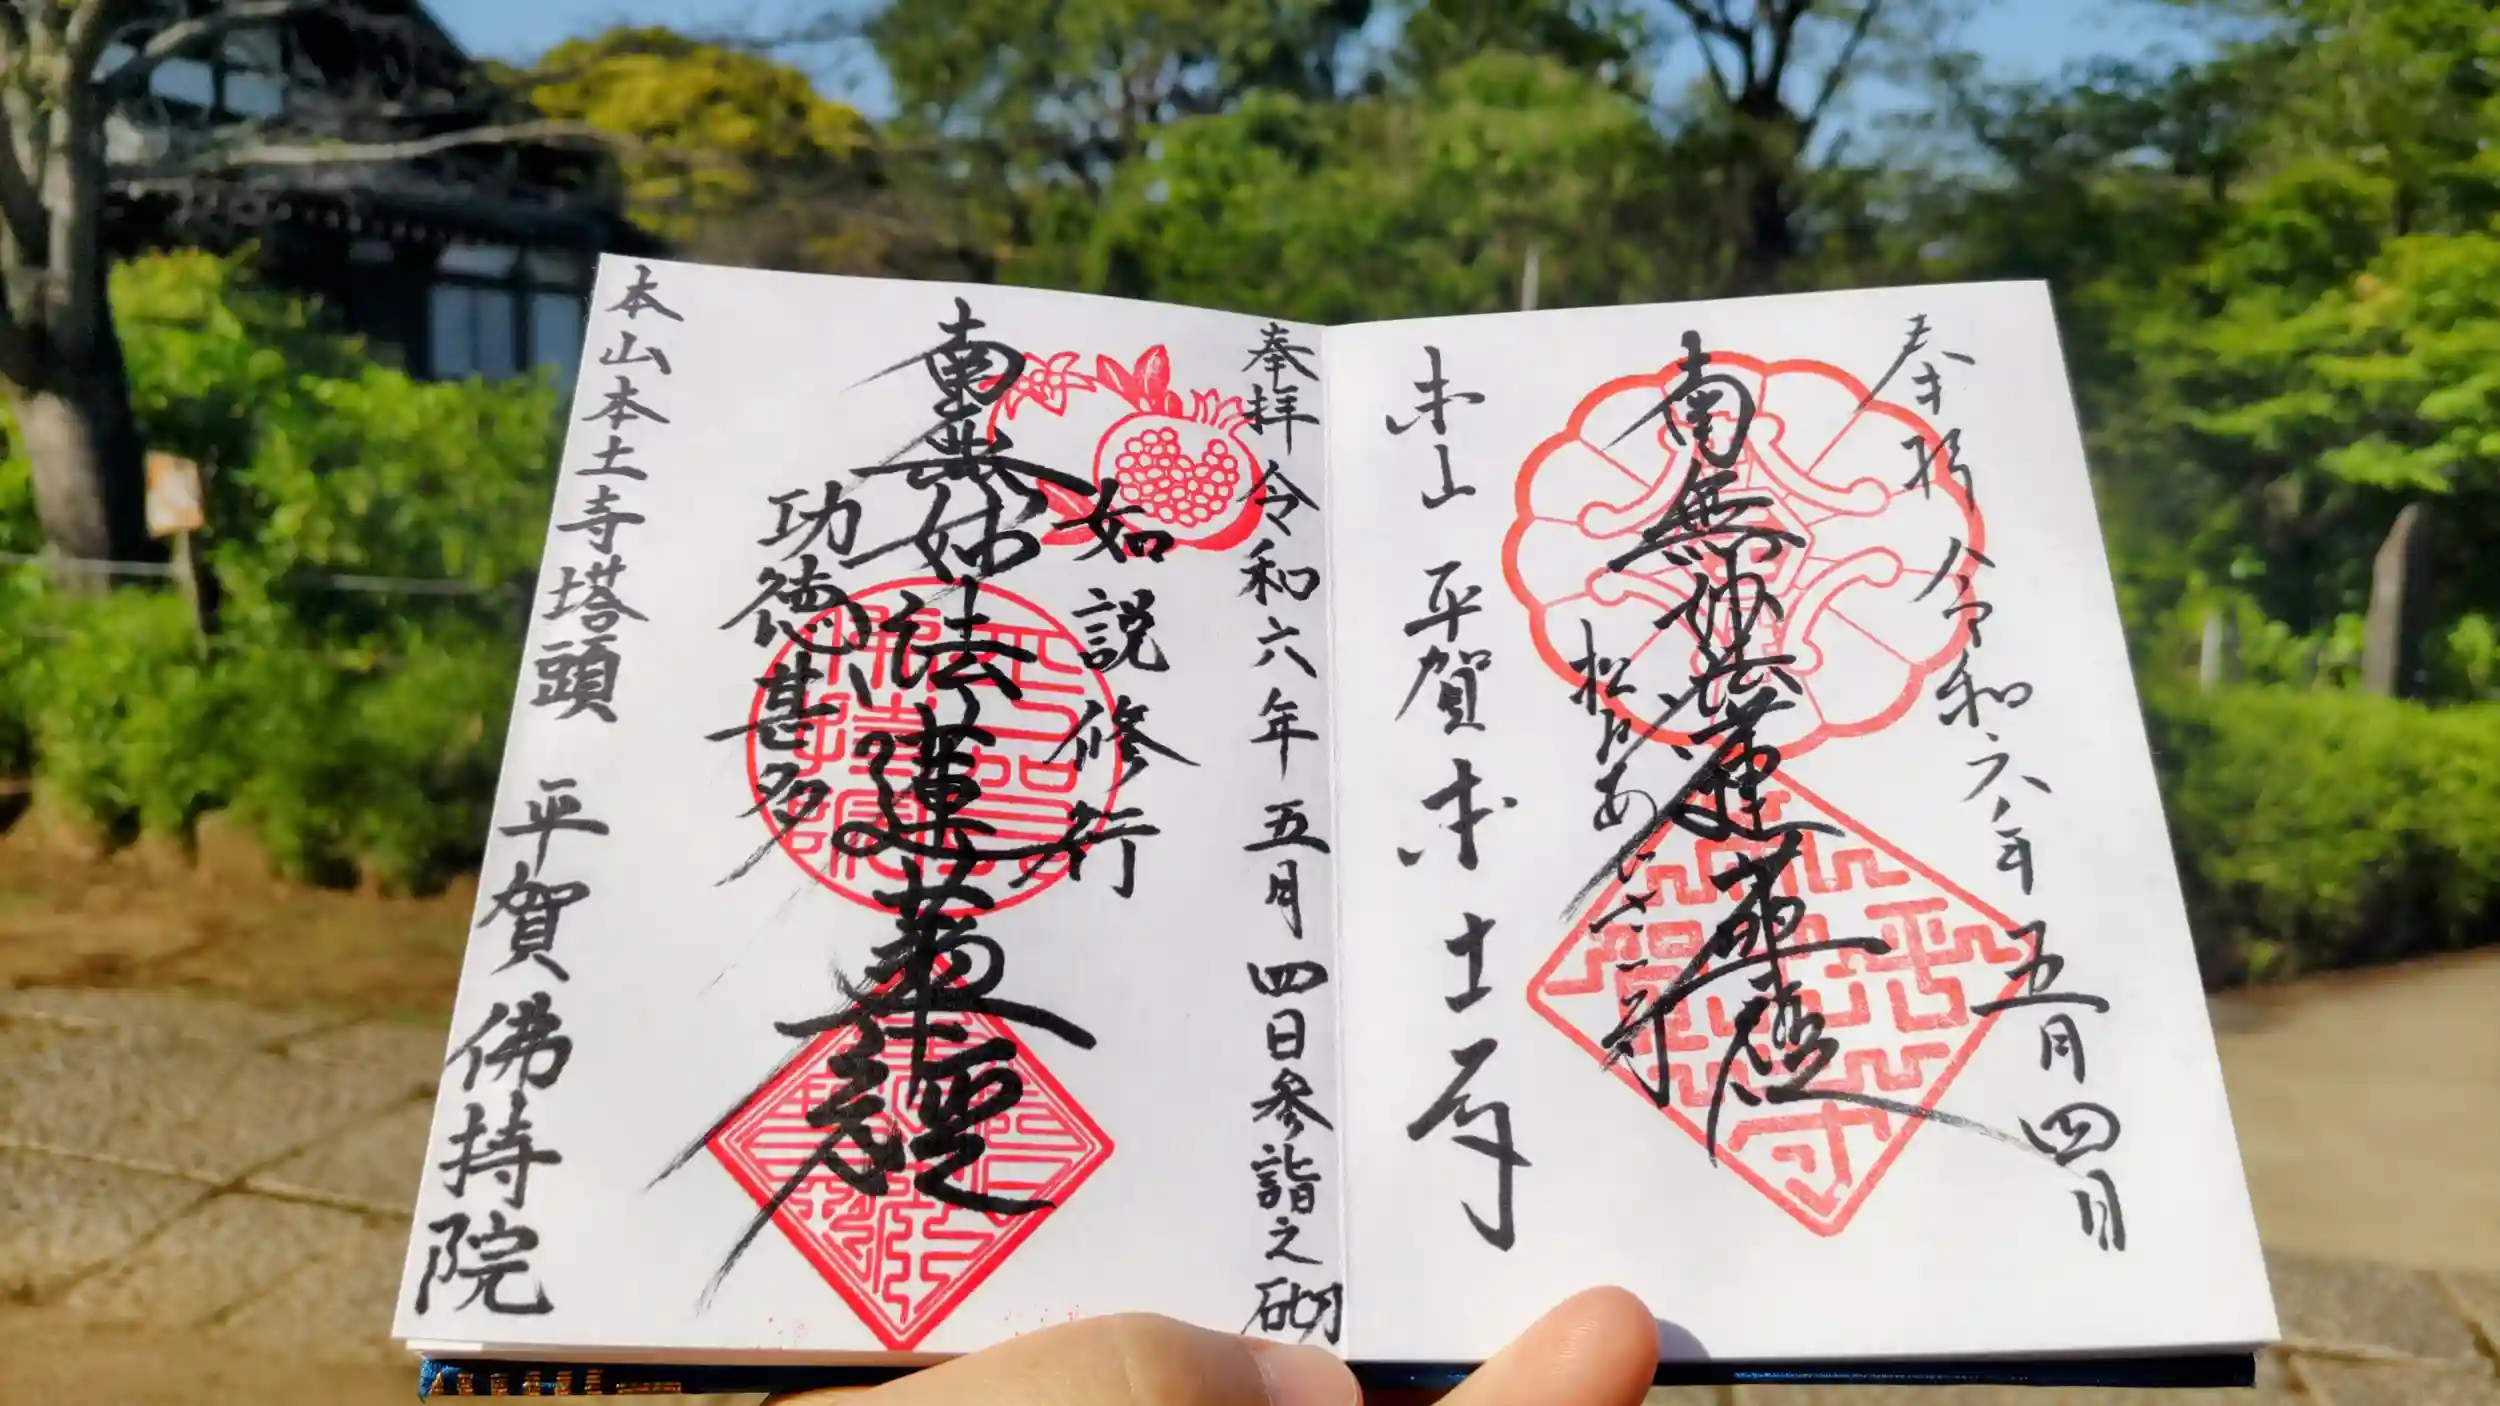 奉拝 令和六年五月四日
南無妙法蓮華経
松戸あじさい寺
本山 平賀本土寺
奉拝 令和六年五月四日参詣之砌
如説修行
南無妙法蓮華経
功徳甚多
本山本土寺塔頭 平賀佛持院